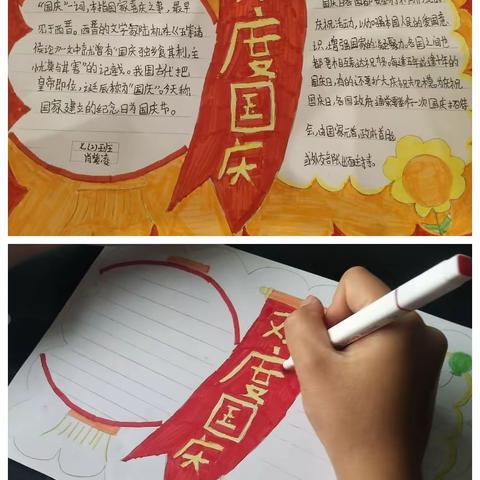 "国庆"一词,本指国家喜庆之事,最早
见于西晋。西晋的文学家陆机在《五等诸
侯论》一文中就曾有"国庆独飨其利,主
忧莫与其害"的记载。我国古代把
皇帝即位、诞辰称为"国庆"。今天称
国家建立的纪念日为国庆节。
度国庆
庆祝活动,以加强本国人民的爱国意
识,增强国家的凝聚力。各国之间也
国庆日,各国政府通常要举行一次国庆招待
会,由国家元首、政府首脑
欢度国庆